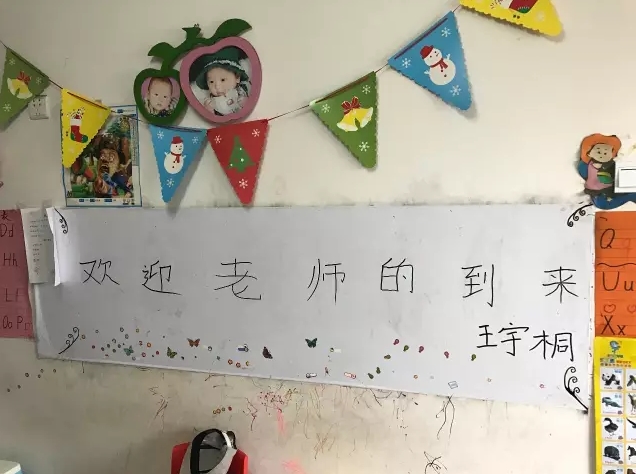 欢迎老师的到来
王宇桐
Dd
Hh
Ll
Pp
Q
Uu
Xx